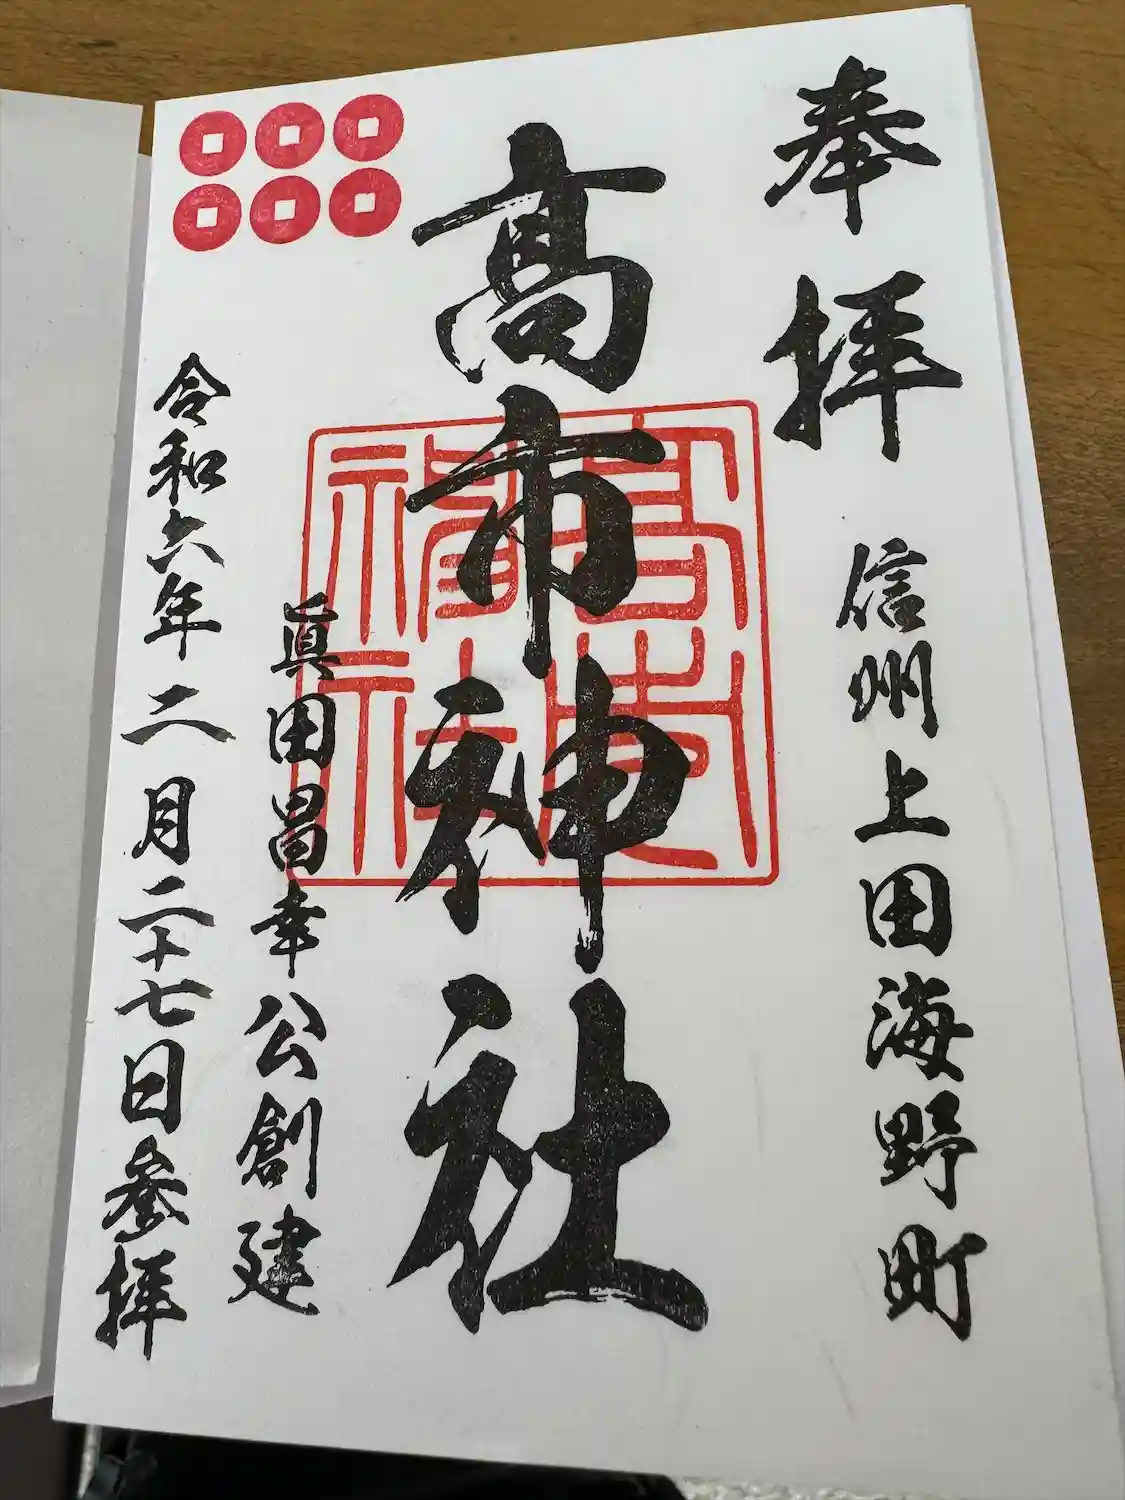 奉拝 信州上田海野町
高市神社
眞田昌幸公創建
令和六年二月二十七日参拝
高市神社